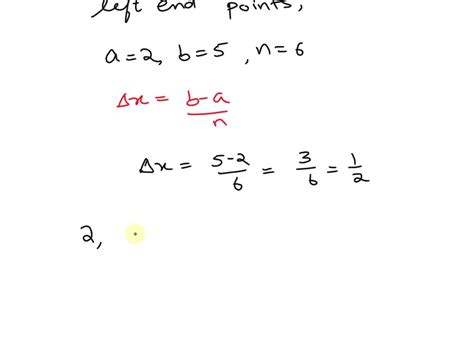 left end points,
a=2, b=5, n=6
Δx = b-a/n
Δx = 5-2/6 = 3/6 = 1/2
2,